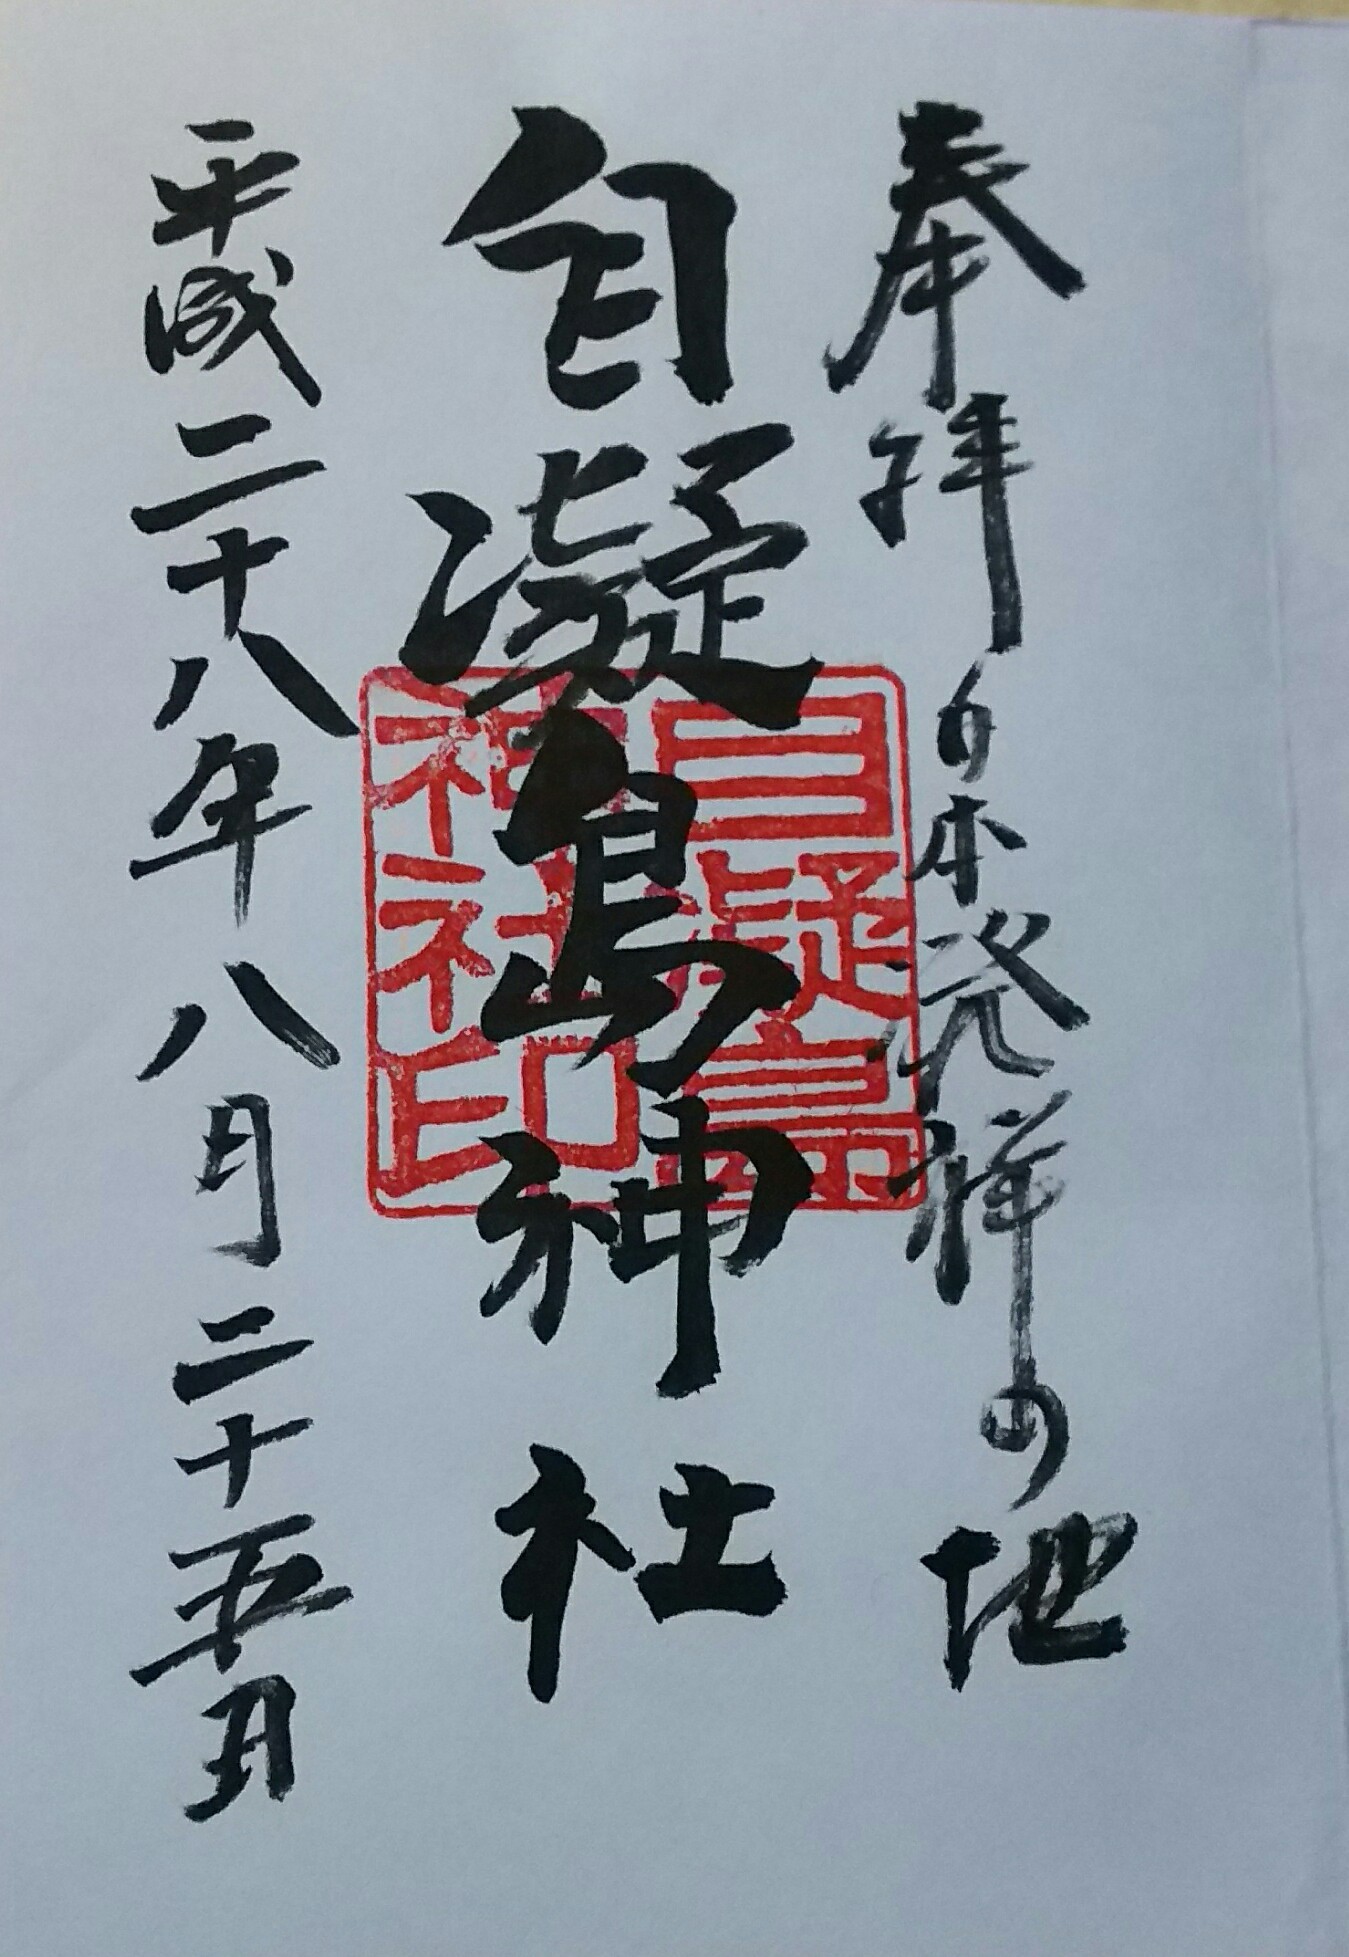 奉拝 日本発祥の地
自凝島神社
自凝島
神社印
平成二十八年八月二十五日